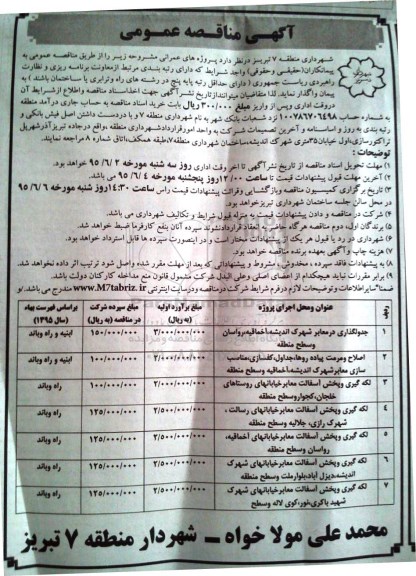 آگهی مناقصه عمومی
شهرداری منطقه ۷ تبریز درنظر دارد پروژه های عمرانی مشروحه زیر را از طریق مناقصه عمومی به
پیمانکاران(حقیقی وحقوقی) واجد شرایط که دارای رتبه بندی مرتبط ازمعاونت برنامه ریزی و نظارت
راهبردی ریاست جمهوری ( دارای حداقل رتبه پایه پنج در رشته های راه وترابری یا ساختمان باشند ) به
پیمان واگذار نماید. لذا متقاضیان میتوانندازتاریخ نشرآگهی جهت اخذاسناد مناقصه واطلاع ازشرایط آن
دروقت اداری پس از واریز مبلغ ۳۰۰/۰۰۰ ریال بابت خرید اسناد مناقصه به حساب جاری درآمد منطقه
به شماره حساب ۱۰۰۷۸۶۷۰۶۴۹۸ نزد شعبات بانک شهر به نام شهرداری منطقه ۷ و با دردست داشتن اصل فیش بانکی و
رتبه بندی به روز و اساسنامه و آخرین تصمیمات شرکت به واحد امورقراردادشهرداری منطقه ،واقع درجاده تبریز آذرشهرپل
تراکتورسازی،اول خیابان۳۵متری شهرک اندیشه،ساختمان شهرداری منطقه۷،طبقه همکف،اتاق شماره ۸ مراجعه نمایند.
توضیحات :
۱) مهلت تحویل اسناد مناقصه از تاریخ نشرآگهی تا آخر وقت اداری روز سه شنبه مورخه ۹۵/۶/۲ خواهد بود.
۲) آخرین مهلت قبول پیشنهادات قیمت تا ساعت ۱۲/۰۰روز پنجشنبه مورخه ۹۵/۶/۴ می باشد.
۳) تاریخ برگزاری کمیسیون مناقصه وبازگشایی وقرائت پیشنهادات قیمت راس ساعت ۱۴:۳۰روز شنبه مورخه ۹۵/۶/۶
در محل سالن جلسه ساختمان شهرداری تبریزخواهد بود.
۴) شرکت در مناقصه و دادن پیشنهادات قیمت به منزله قبول شرایط و تکالیف شهرداری می باشد.
۵) برندگان اول، دوم مناقصه هرگاه حاضر به انعقاد قراردادنشوند سپرده آنان بنفع کارفرما ضبط خواهد شد.
۶) شهرداری در رد یا قبول هر یک از پیشنهادات مختار است و در اینصورت سپرده ها قابل استرداد خواهد بود.
۷) هزینه چاپ آگهی بعهده برنده مناقصه خواهد بود.
۸) به پیشنهادات فاقد سپرده ، مخدوش ، مشروط و پیشنهاداتی که بعد از مهلت مقرر شده واصل شود ترتیب اثر داده نخواهد شد.
۹) برابر مقررات نباید هیچکدام از اعضای اصلی وعلی البدل شرکت مشمول قانون منع مداخله کارکنان دولت باشد.
ضمنا"سایراطلاعات وتوضیحات لازم درفرم شرکت درمناقصه ودرسایت اینترنتی www.M7tabriz.ir مندرج می باشد./و
ردیف عنوان ومحل اجرای پروژه مبلغ برآورد اولیه (به ریال) مبلغ سپرده شرکت در مناقصه (به ریال) براساس فهرست بهاء (سال ۱۳۹۵)
۱ جدولگذاری درمعابر شهرک اندیشه،اخماقیه،رواسان وسطح منطقه ۳/۰۰۰/۰۰۰/۰۰۰ ۱۵۰/۰۰۰/۰۰۰ ابنیه و راه وباند
۲ اصلاح ومرمت پیاده روها،جداول،کفسازی،مناسب سازی معابرشهرک اندیشه،اخماقیه وسطح منطقه ۲/۰۰۰/۰۰۰/۰۰۰ ۱۰۰/۰۰۰/۰۰۰ ابنیه و راه وباند
۳ لکه گیری وپخش آسفالت معابرخیابانهای روستاهای خلجان،کجوار وسطح منطقه ۲/۰۰۰/۰۰۰/۰۰۰ ۱۰۰/۰۰۰/۰۰۰ راه وباند
۴ لکه گیری وپخش آسفالت معابرخیابانهای رسالت ، شهرک رازی، جلالیه وسطح منطقه ۲/۵۰۰/۰۰۰/۰۰۰ ۱۲۵/۰۰۰/۰۰۰ راه وباند
۵ لکه گیری وپخش آسفالت معابرخیابانهای اخماقیه، رواسان وسطح منطقه ۲/۵۰۰/۰۰۰/۰۰۰ ۱۲۵/۰۰۰/۰۰۰ راه وباند
۶ لکه گیری وپخش آسفالت معابرخیابانهای شهرک اندیشه،دیزل آباد،بلوارملت وسطح منطقه ۲/۵۰۰/۰۰۰/۰۰۰ ۱۲۵/۰۰۰/۰۰۰ راه وباند
۷ لکه گیری وپخش آسفالت معابرخیابانهای شهرک شهید باکری،خور،کوی لاله وسطح ۲/۵۰۰/۰۰۰/۰۰۰ ۱۲۵/۰۰۰/۰۰۰ راه وباند
محمد علی مولا خواه – شهردار منطقه ۷ تبریز